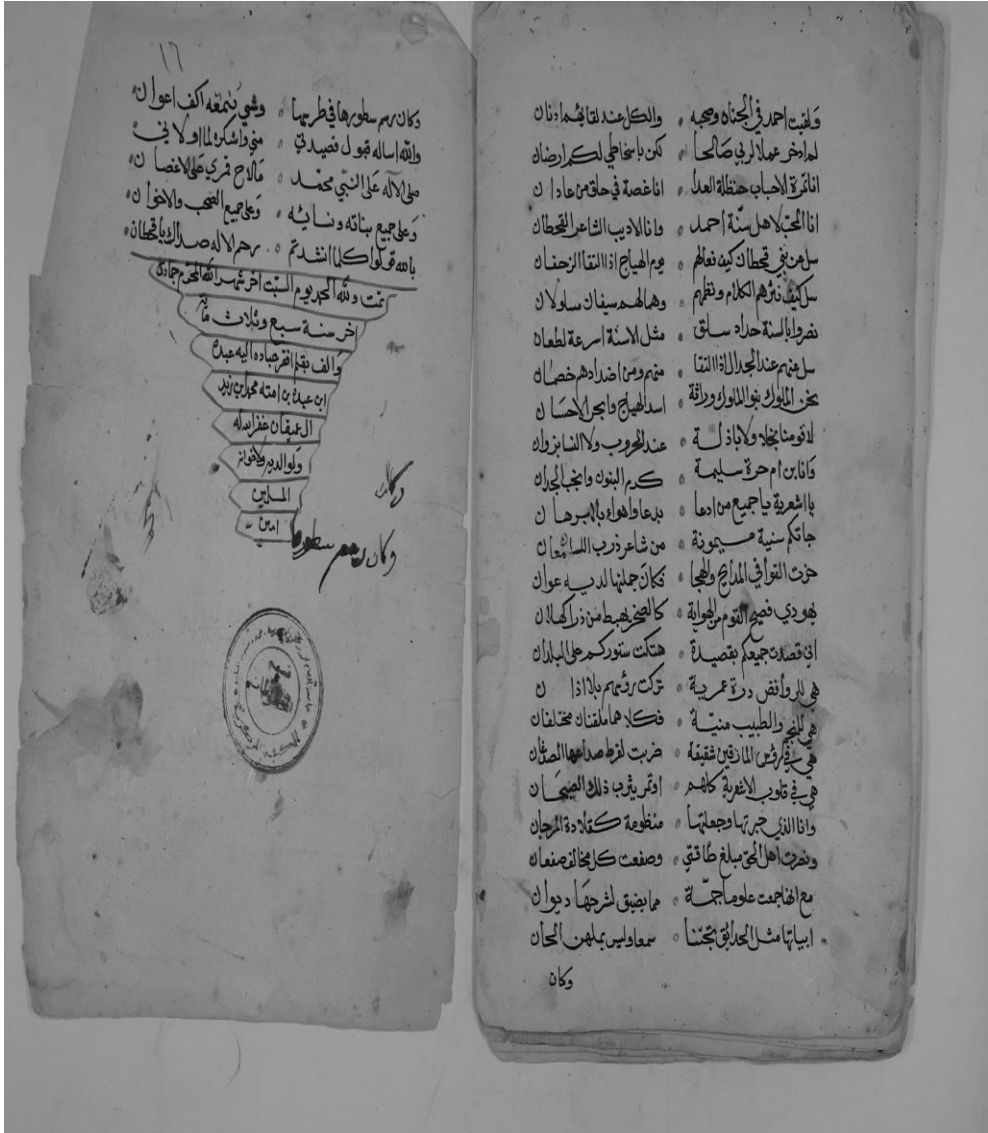 ولقيت احمد في الجنان وصحبه والكل عند لقائهم ادنان
لم ادخر عملا لربي صالحا لكن باسخاطي لكم ارضان
انا تمرة الاحباب حنظلة العدا انا غصة في حلق من عادان
انا المحب لاهل سنة احمد وانا الاديب الشاعر القحطان
سل عن بني قحطان كيف فعالهم يوم الهياج اذا التقا الزحفان
سل كيف نثرهم الكلام ونظمهم وهما لهم سيفان مسلولان
نصروا بالسنة حداد سلق مثل الاسنة اسرعة لطعان
سل عنهم عند الجدال اذا التقا منهم ومن اضدادهم خصمان
نحن الملوك بنو الملوك وراثة اسد الهياج وابحر الاحسان
لا قومنا بخلا ولا باذلة عند الحروب ولا النسا بزوان
وانا ابن ام حرة سليمة كرم البنون وانجب الجدان
يا اشعرية يا جميع من ادعا بدعا واهواء بلا برهان
جاتكم سنية ميمونة من شاعر ذرب اللسان معان
حزت القوافي المدايح والهجا فكان جملتها لديه عوان
يهودي فصيح القوم من لهواته كالصخر يهبط من ذرا كهلان
اني قصدت جميعكم بقصيدة هتكت ستوركم على البلدان
هي للروافض درة عمرية تركت رؤسهم بلا اذان
هي للمنجم والطبيب منية فكلاهما ملقنان مختلفان
هي في رؤس المارقين شقيقة ضربت لفرط صداعها الصدغان
هي في قلوب الاشعرية كلهم او تمر يثرب ذلك الصيحان
وانا الذي حبرتها وجعلتها منظومة كقلادة المرجان
ونصرت اهل الحق مبلغ طاقتي وصفعت كل مخالف صفعان
مع انها جمعت علوما جمة مما يضيق لشرحها ديوان
ابياتها مثل الحدائق تجتنا سمعا وليس يملهن الجان
وكان
١٦
وكان رسم سطورها في طرسها وشي تنمقه اكف اعوان
والله اساله قبول قصيدتي مني واشكره لما اولاني
صلى الاله على النبي محمد مالاح قمري على الاغصان
وعلى جميع بناته ونسائه وعلى جميع الصحب والاخوان
بالله قولوا كلما انشدتم رحم الاله صداك يا قحطان
تمت ولله الحمد يوم السبت اخر شهر الله المحرم جمادى
اخر سنة سبع وثلاث مائة
والف بقلم افقر عباده اليه عبده
ابن عبده بن امته محمد ابن زيد
ال عميقان غفر الله له
ولوالديه ولاخوانه
المسلمين
امين
وكان
وكان رسم سطورها